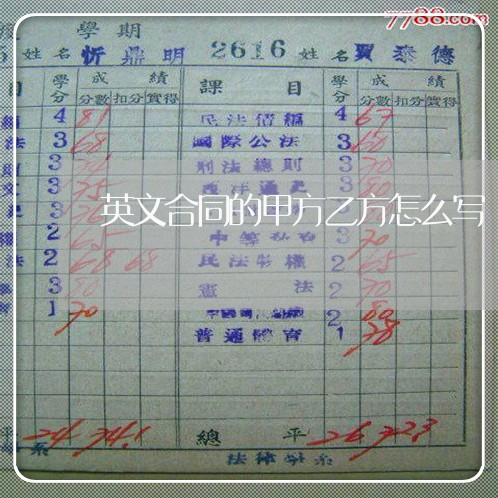 7788.com
學期
姓名 忻鼎明 2616 姓名 賈泰德
目 學分 成績 課目 學分 成績
分數 扣分 實得 分數 扣分 實得
4 81 民法債編 4 67
法 3 68 國際公法 3 60
3 刑法總則 3 70
3 75 西洋通史 3
英文合同的甲方乙方怎么写
2 65 3 70
法 2 68 68 民法物權 2 65
3 80 憲法 2 70
1 70 2 80
普通體育 1 78
平 24 74.1 總平 26 72.3
系 法律學系